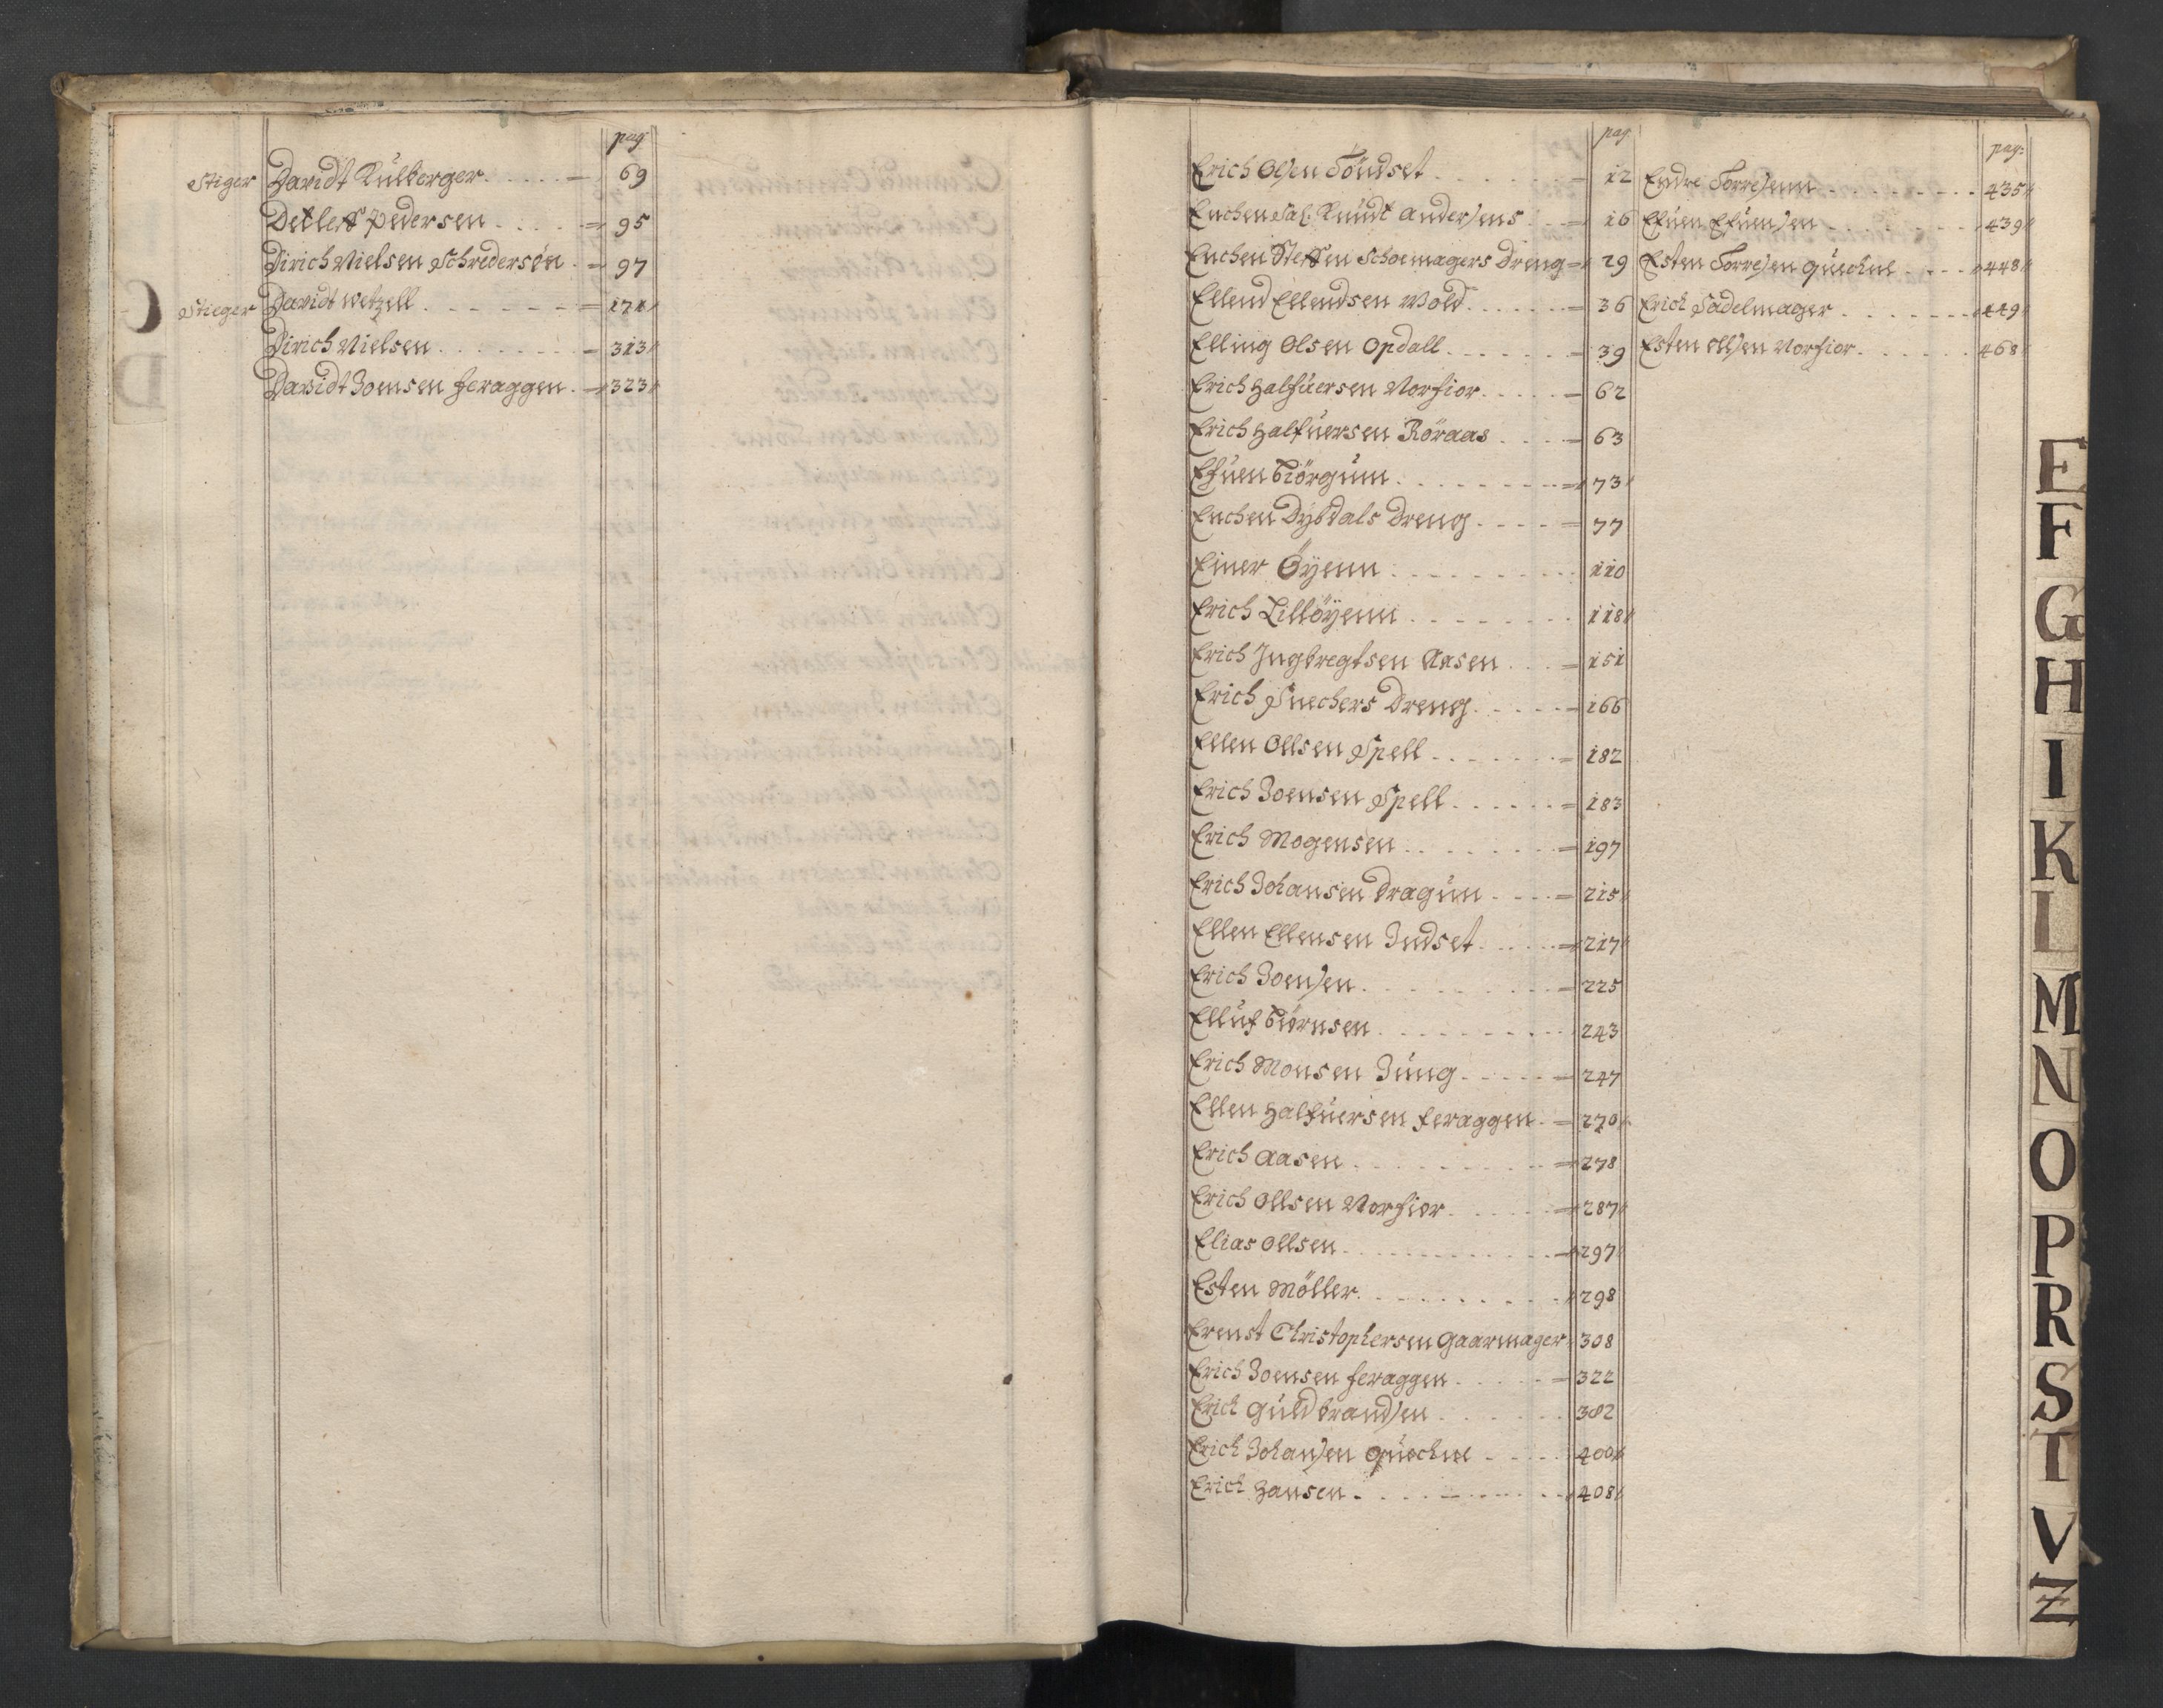 pag
Stiger Davidt Kulberger 69
Detleff Pedersen 95
Dirich Nielsen Schredersøn 97
Stieger Davidt Wetzell 171
Dirich Nielsen 313
Davidt Joensen feraggen 323
C
D
pag
Erich Olsen Töndset 12
Enchen Sal: Knudt Andersens 16
Enchen Steffen Schoemagers Dreng 29
Ellend Ellendsen Wold 36
Elling Olsen Opdall 39
Erich Halfuersen Norfior 62
Erich Halfuersen Röraas 63
Efuen Biörgum 73
Enchen Dybdals Dreng 77
Einer Öyenn 110
Erich Lillöyenn 118
Erich Jngbregtsen Aasen 151
Erich Snechers Dreng 166
Ellen Ollsen Spell 182
Erich Joensen Spell 183
Erich Mogensen 197
Erich Johansen Dragun 215
Ellen Ellensen Indset 217
Erich Joensen 225
Elluf Biørnsen 243
Erich Monsen Jung 247
Ellen Halfuersen feraggen 270
Erich Aasen 278
Erich Ollsen Norfior 287
Elias Ollsen 297
Esten Möller 298
Ernst Christophersen Gaarmager 308
Erich Joensen feraggen 322
Erich Guldbrandsen 382
Erich Johansen Quechne 400
Erich Hansen 408
pag:
Endre Torresenn 435
Efuen Efuensen 439
Esten Torresen Quechne 448
Erich Sadelmager 449
Esten Ollsen Norfior 468
E
F
G
H
I
K
L
M
N
O
P
R
S
T
V
Z